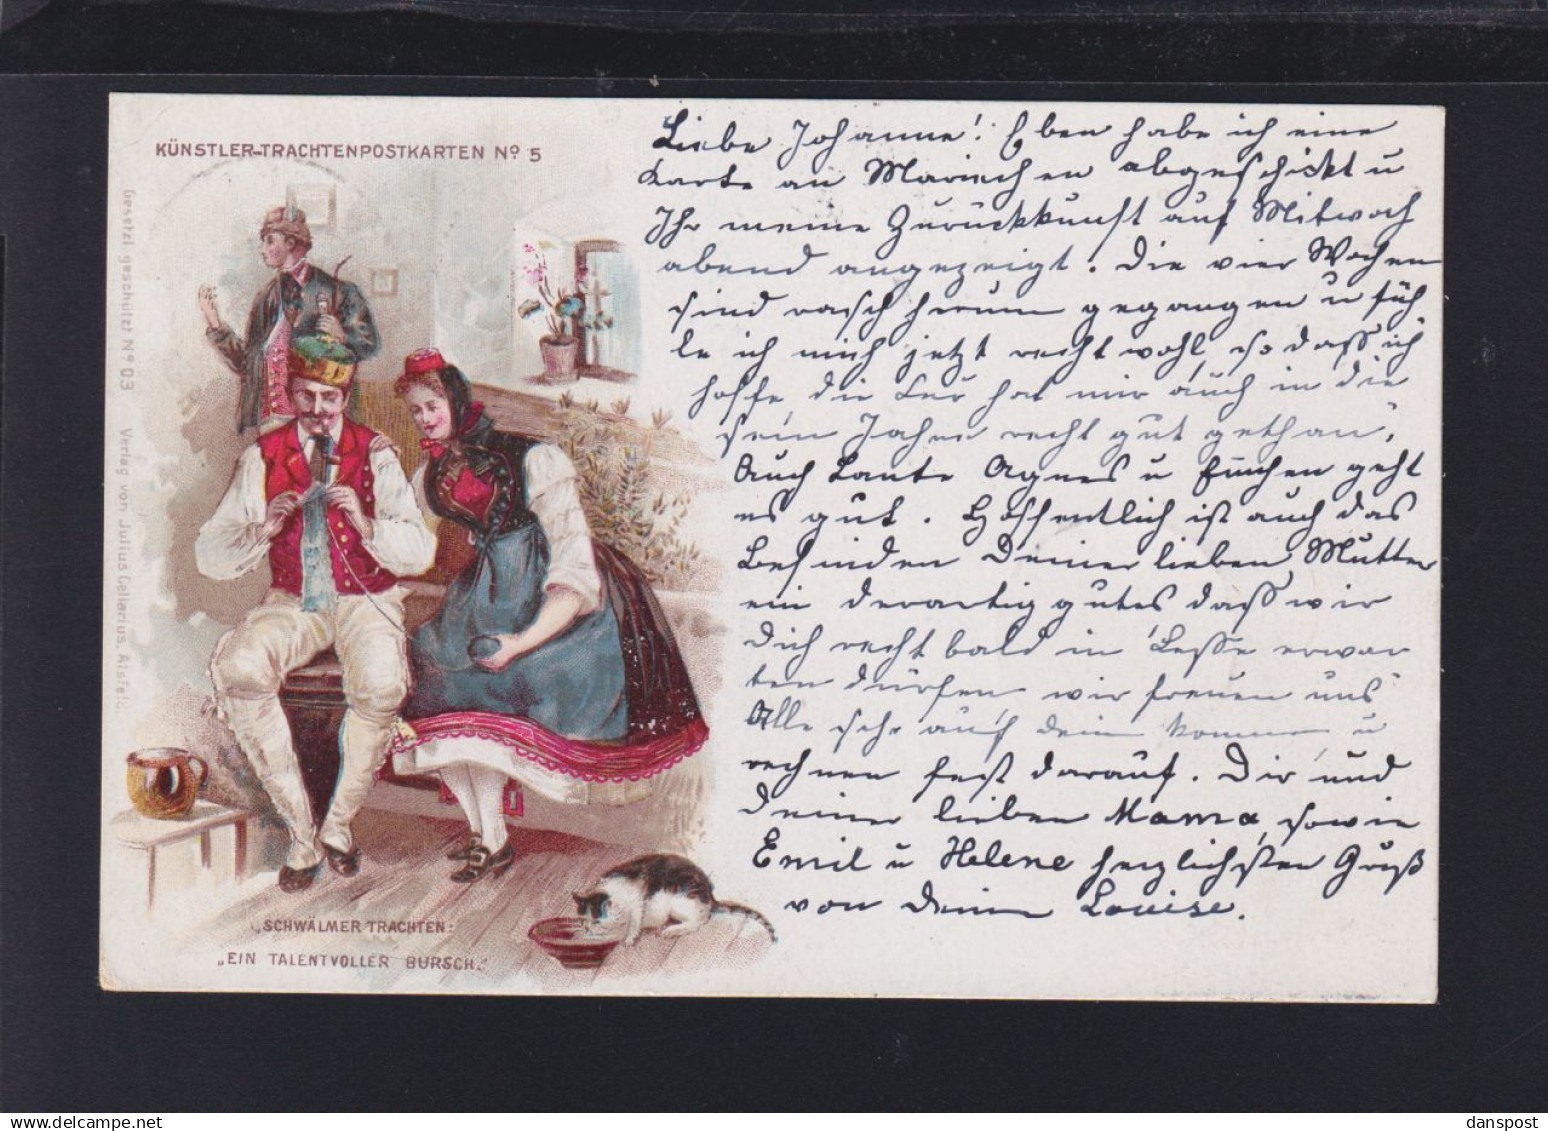 KÜNSTLER-TRACHTENPOSTKARTEN No 5
Gesetzl geschützt No 03 Verlag von Julius Cellarius, Alsfeld.
Liebe Johanne! Eben habe ich eine
Karte an Mariechen abgeschickt u
Ihr meine Zurückkunft auf Mitwoch
abend angezeigt. Die vier Wochen
sind rasch herum gegangen u füh
le ich mich jetzt recht wohl, so daß ich
hoffe, die Kur hat mir auch in die
sem Jahre recht gut gethan.
Auch Tante Agnes u geht
es gut. Hoffentlich ist auch das
Befinden Deiner lieben Mutter
ein derartig gutes daß wir
Dich recht bald in Lesse erwar
ten dürfen wir freuen uns
Alle sehr auf dein kommen u
rechnen fest darauf. Dir und
deiner lieben Mama, sowie
Emil u Helene herzlichsten Gruß
von deine Louise.
„SCHWÄLMER TRACHTEN:
„EIN TALENTVOLLER BURSCH."
www.delcampe.net
danspost